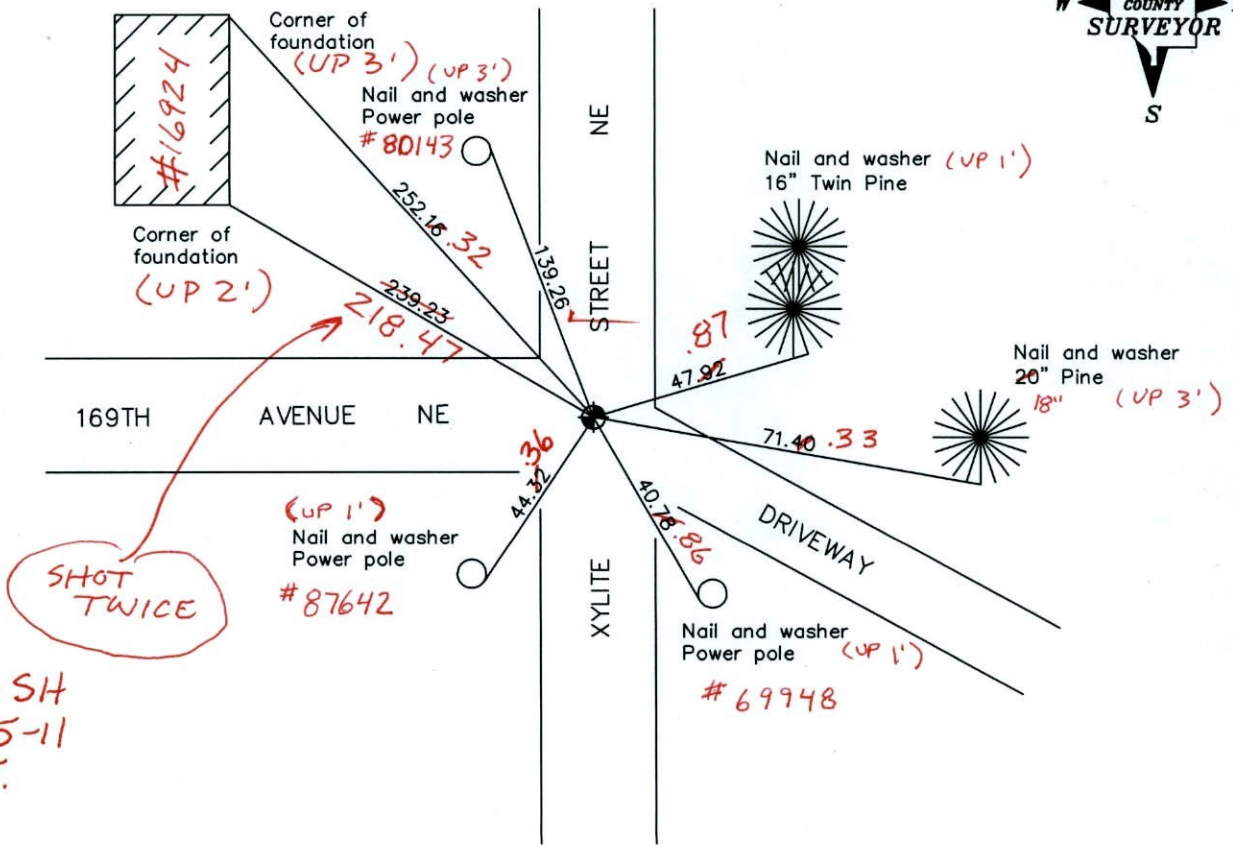 W
COUNTY
SURVEYOR
S
Corner of
foundation
(UP 3')
(UP 3')
Nail and washer
Power pole
#80143
#16924
NE
STREET
Nail and washer (UP 1')
16" Twin Pine
252.16 .32
139.26
Corner of
foundation
(UP 2')
239.23
218.47
.87
47.92
Nail and washer
20" Pine
18" (UP 3')
169TH AVENUE NE
71.40 .33
.36
44.32
40.78 .86
DRIVEWAY
(UP 1')
Nail and washer
Power pole
#87642
XYLITE
SHOT
TWICE
Nail and washer
Power pole (UP 1')
#69948
SH
5-11